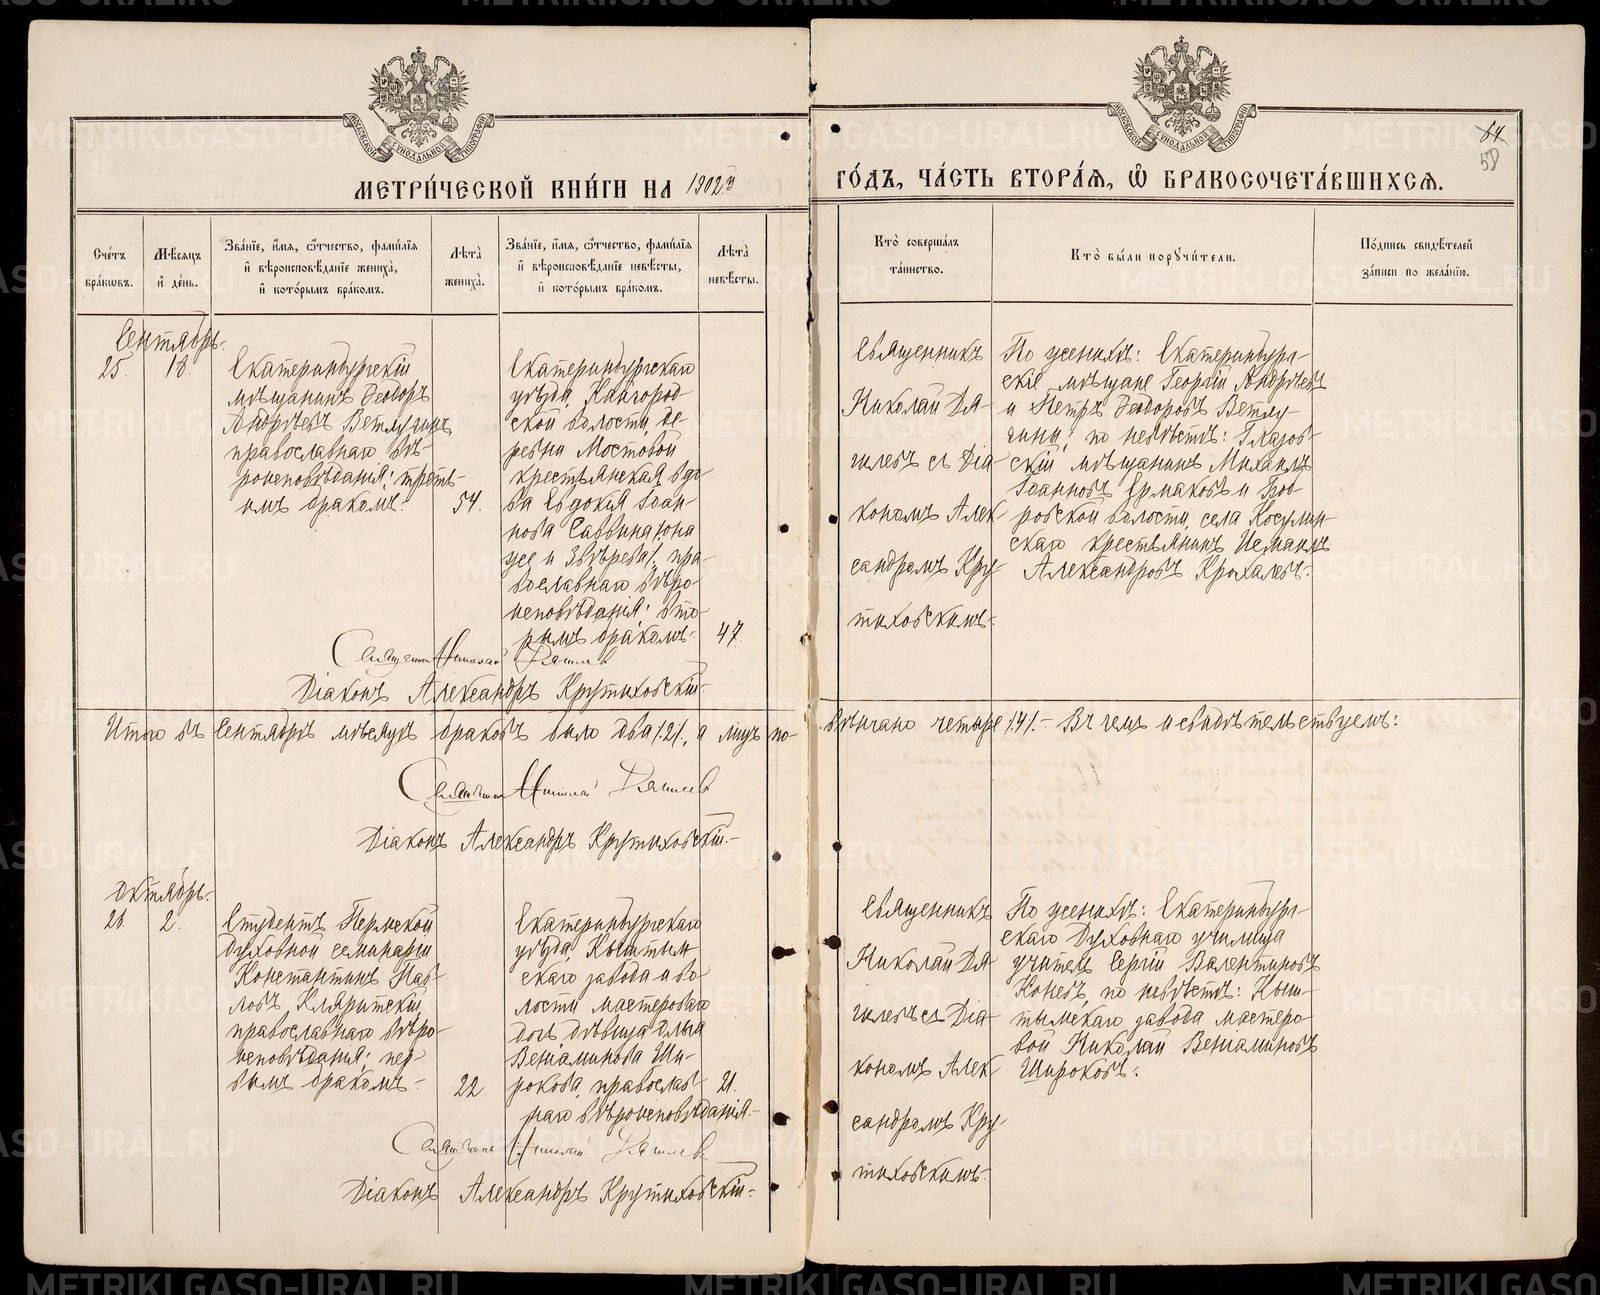 МЕТРИ́ЧЕСКОЙ КНИ́ГИ НА 1902й
ГО́ДЪ, ЧА́СТЬ ВТОРА́Я, Ѡ҆ БРАКОСОЧЕТА́ВШИХСЯ.
64
58
Сче́тъ бра́кѡвъ.
Мѣ́сяцъ и҆ де́нь.
Зва́нїе, и҆́мя, ѻ҆́тчество, фамѝлїя и҆ вѣроисповѣ́данїе жениха̀, и҆ кото́рымъ бра́комъ.
Лѣ́та жениха̀.
Зва́нїе, и҆́мя, ѻ҆́тчество, фамѝлїя и҆ вѣроисповѣ́данїе невѣ́сты, и҆ кото́рымъ бра́комъ.
Лѣ́та невѣ́сты.
Кто̀ соверша́лъ та́инство.
Кто̀ бы́ли порꙋчи́тели.
По́дпись свидѣ́телей за́писи по жела́нїю.
Сентябрь.
25. 18.
Екатеринбургскій
мѣщанинъ Ѳеодоръ
Андреевъ Ветлугинъ
православнаго вѣ-
роисповѣданія; треть-
имъ бракомъ.
54.
Екатеринбургскаго
уѣзда, Кайгород-
ской волости, де-
ревни Мостовой
крестьянская вдо-
ва Евдокія Іоан-
нова Саввина /она
же и Звѣрева/, пра-
вославнаго вѣро-
исповѣданія; вто-
рымъ бракомъ.
47.
Священникъ
Николай Дя-
гилевъ съ Діа-
кономъ Алек-
сандромъ Кру-
тиховскимъ.
По женихѣ: Екатеринбург-
скіе мѣщане Георгій Андреевъ
и Петръ Ѳеодоровъ Ветлу-
гины; по невѣстѣ: Глазов-
скій мѣщанинъ Михаилъ
Іоанновъ Ермаковъ и Бов-
ровской волости, села Косулин-
скаго крестьянинъ Исмаилъ
Александровъ Крохалевъ.
Священникъ Николай Дягилевъ
Діаконъ Александръ Крутиховскій.
Итого въ Сентябрѣ мѣсяцѣ браковъ было два /2/, а лицъ по-
вѣнчано четыре /4/. – Въ чемъ и свидѣтельствуемъ:
Священникъ Николай Дягилевъ
Діаконъ Александръ Крутиховскій.
Октябрь.
26. 2.
Студентъ Пермской
духовной семинаріи
Константинъ Пав-
ловъ Кляритскій,
православнаго вѣро-
исповѣданія; пер-
вымъ бракомъ.
22
Екатеринбургскаго
уѣзда, Кыштым-
скаго завода и во-
лости мастероваго
дочь дѣвица Ольга
Веніаминова Ши-
рокова, православ-
наго вѣроисповѣданія.
21.
Священникъ
Николай Дя-
гилевъ съ Діа-
кономъ Алек-
сандромъ Кру-
тиховскимъ.
По женихѣ: Екатеринбург-
скаго Духовнаго училища
учитель Сергій Валентиновъ
Коневъ, по невѣстѣ: Кыш-
тымскаго завода мастеро-
вой Николай Веніаминовъ
Широковъ.
Священникъ Николай Дягилевъ
Діаконъ Александръ Крутиховскій.
METRIKI.GASO-URAL.RU